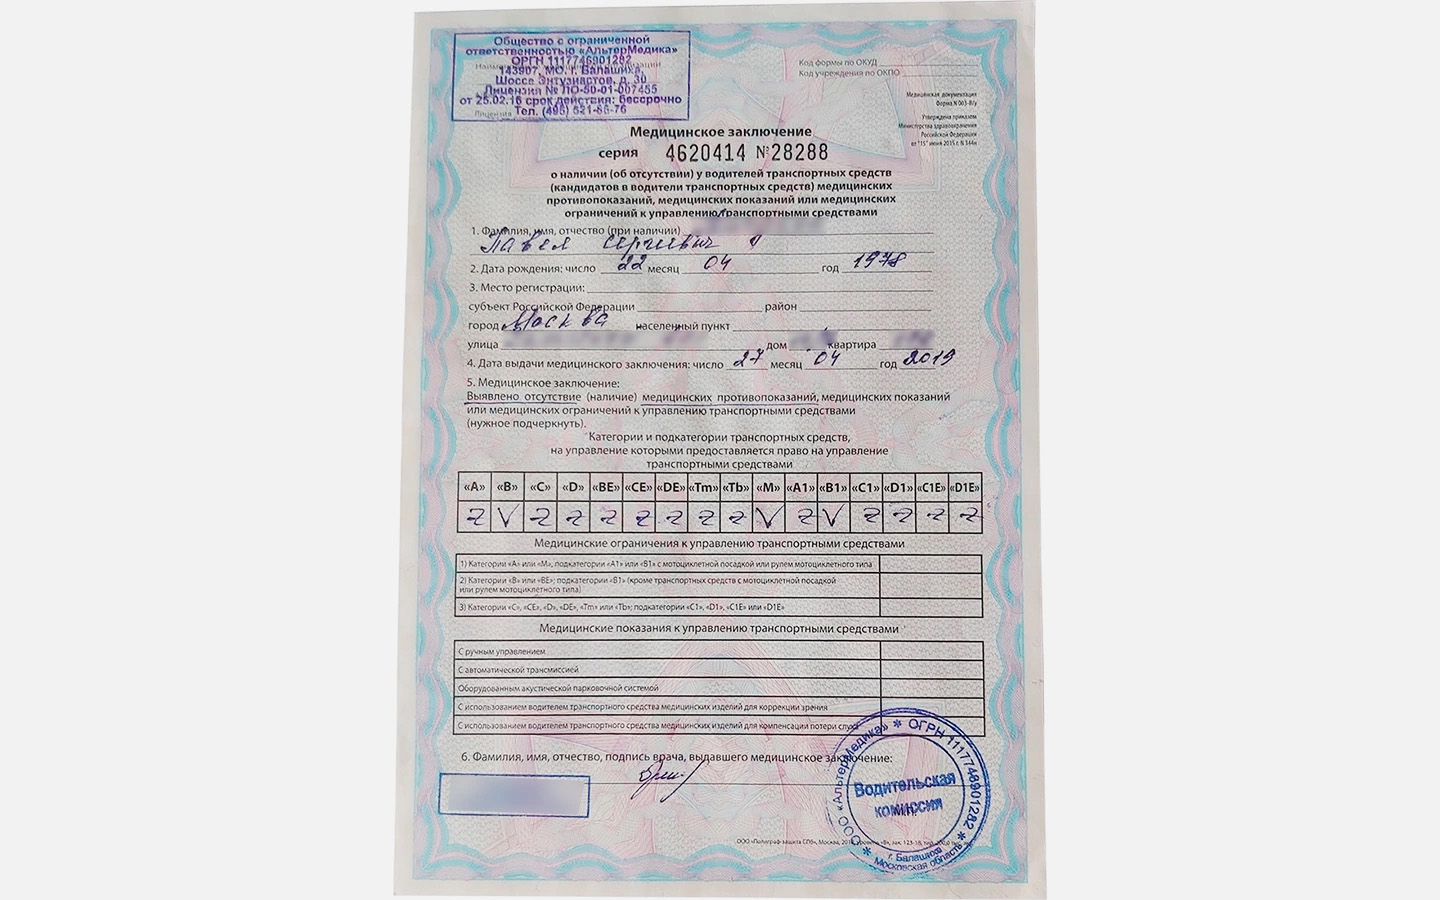 Общество с ограниченной
ответственностью «АльтерМедика»
ОРГН 1117746901282
143907, МО, г. Балашиха,
Шоссе Энтузиастов, д. 30
Лицензия № ЛО-50-01-007455
от 25.02.16 срок действия: бессрочно
Тел. (495) 521-86-76
Код формы по ОКУД
Код учреждения по ОКПО
Медицинская документация
Форма N 003-В/у
Утверждена приказом
Министерства здравоохранения
Российской Федерации
от "15" июня 2015 г. N 344н
Медицинское заключение
серия 4620414 № 28288
о наличии (об отсутствии) у водителей транспортных средств
(кандидатов в водители транспортных средств) медицинских
противопоказаний, медицинских показаний или медицинских
ограничений к управлению транспортными средствами
1. Фамилия, имя, отчество (при наличии)
Павел Сергиевич
2. Дата рождения: число 22 месяц 04 год 1978
3. Место регистрации:
субъект Российской Федерации район
город Москва населенный пункт
улица дом квартира
4. Дата выдачи медицинского заключения: число 27 месяц 04 год 2019
5. Медицинское заключение:
Выявлено отсутствие (наличие) медицинских противопоказаний, медицинских показаний
или медицинских ограничений к управлению транспортными средствами
(нужное подчеркнуть).
Категории и подкатегории транспортных средств,
на управление которыми предоставляется право на управление
транспортными средствами
«A» «B» «C» «D» «BE» «CE» «DE» «Tm» «Tb» «M» «A1» «B1» «C1» «D1» «C1E» «D1E»
Z V Z Z Z Z Z Z Z V Z V Z Z Z Z
Медицинские ограничения к управлению транспортными средствами
1) Категории «A» или «M», подкатегории «A1» или «B1» с мотоциклетной посадкой или рулем мотоциклетного типа
2) Категории «B» или «BE»; подкатегории «B1» (кроме транспортных средств с мотоциклетной посадкой
или рулем мотоциклетного типа)
3) Категории «C», «CE», «D», «DE», «Tm» или «Tb»; подкатегории «C1», «D1», «C1E» или «D1E»
Медицинские показания к управлению транспортными средствами
С ручным управлением
С автоматической трансмиссией
Оборудованным акустической парковочной системой
С использованием водителем транспортного средства медицинских изделий для коррекции зрения
С использованием водителем транспортного средства медицинских изделий для компенсации потери слуха
6. Фамилия, имя, отчество, подпись врача, выдавшего медицинское заключение:
ООО «АльтерМедика» * ОГРН 1117746901282 *
Водительская
комиссия
г. Балашиха
Московская область
ООО «Полиграф-защита СПб», Москва,